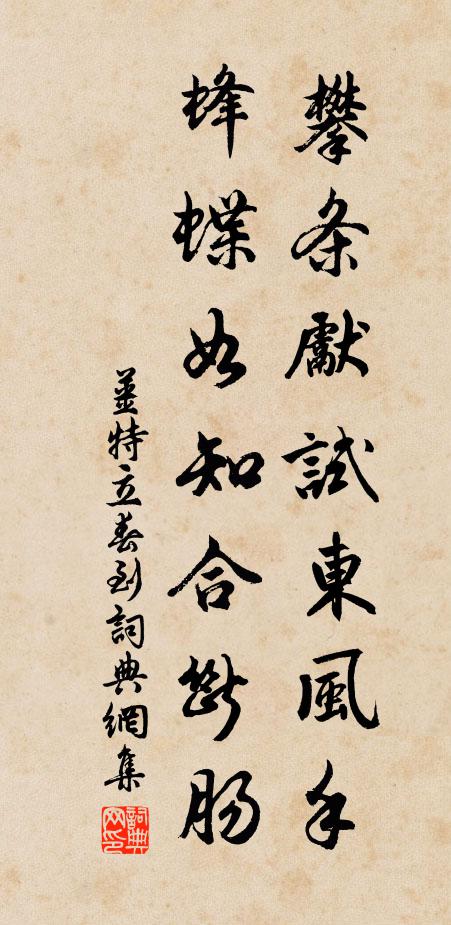 攀条獻試東風手
蜂蝶如知合斷腸
姜特立春到詞典網集
詞典网印